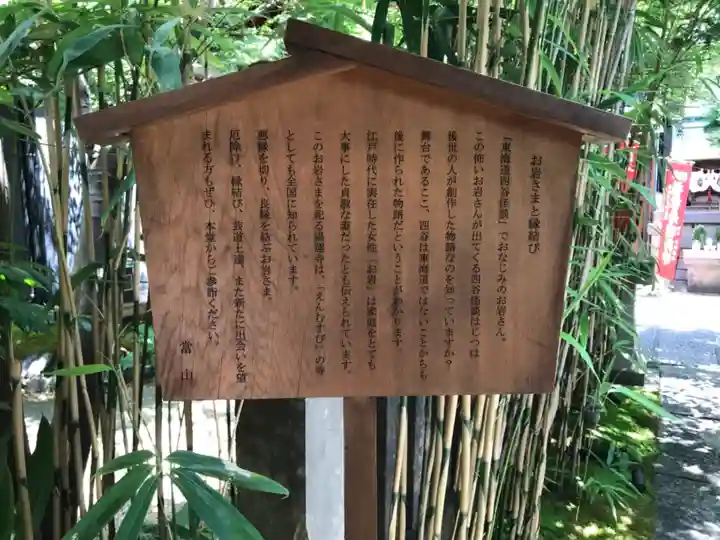 お岩さまと縁結び
『東海道四谷怪談』でおなじみのお岩さん。
この怖いお岩さんが出てくる四谷怪談はじつは
後世の人が創作した物語なのを知っていますか？
舞台であるここ、四谷は東海道ではないことからも
後に作られた物語だということがわかります
江戸時代に実在した女性「お岩」は家庭をとても
大事にした貞淑な妻だったとも伝えられています。
このお岩さまを祀る陽運寺は、「えんむすび」の寺
としても全国に知られています。
悪縁を切り、良縁を結ぶお岩さま。
厄除け、縁結び、芸道上達、また新たに出会いを望
まれる方も、ぜひ、本堂からご参詣ください。
當山